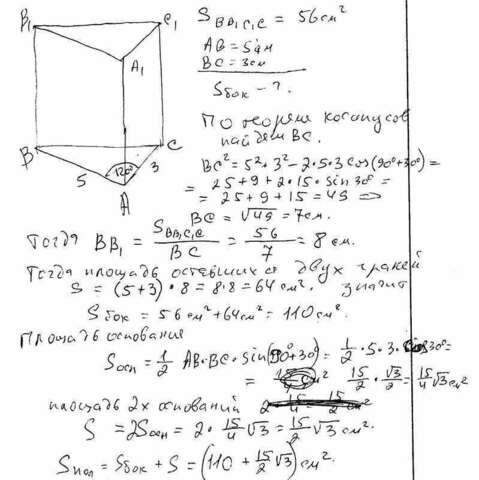 B₁ C₁ S_{BB₁C₁C} = 56 см²
A₁ AB = 5см
BC = 3см
Sбок - ?
По теореме косинусов
найдем BC.
B C
5 120° 3
A
BC² = 5² · 3² - 2·5·3 cos(90°+30°) =
= 25 + 9 + 2·15·sin 30° =
= 25 + 9 + 15 = 49 ⇒
BC = √49 = 7см.
Тогда BB₁ = S_{BB₁C₁C} / BC = 56 / 7 = 8 см.
Тогда площадь оставшихся двух граней
S = (5+3)·8 = 8·8 = 64 см². значит
Sбок = 56 см² + 64 см² = 110 см².
Площадь основания
Sосн = 1/2 AB·BC·sin(90°+30°) = 1/2·5·3·cos30° =
= 15/2 · √3/2 = 15/4 √3 см²
площадь 2х оснований
S = 2Sосн = 2· 15/4 √3 = 15/2 √3 см².
Sпол = Sбок + S = (110 + 15/2 √3) см².